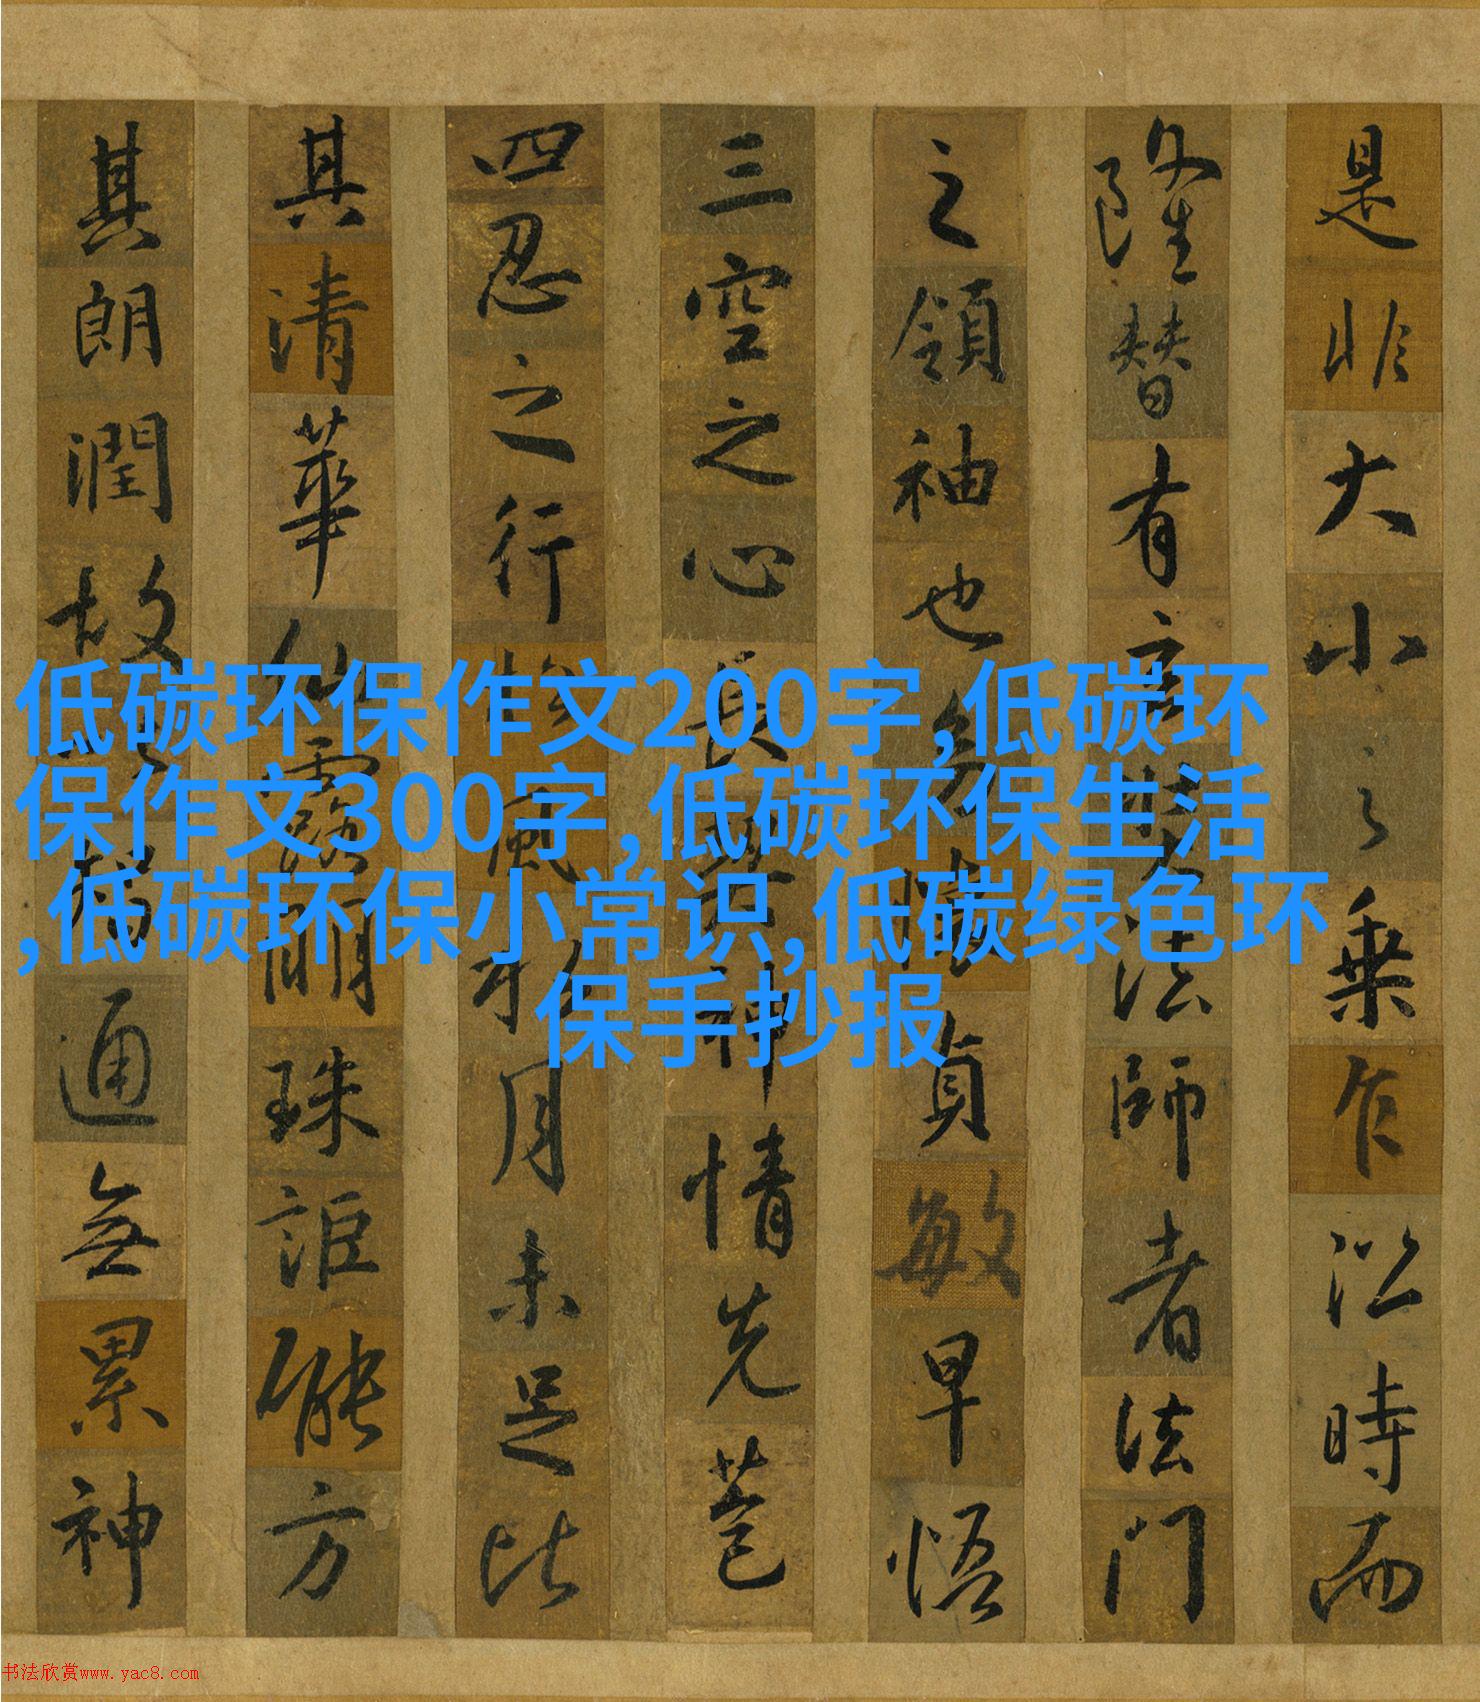 是非大小之乘乍沿時而
隆替有玄奘法師者法門
之領袖也幼懷貞敏早悟
三空之心長契神情先苞
四忍之行松風水月未足比
其清華仙露明珠詎能方
其朗潤故以智通無累神
低碳环保作文200字,低碳环
保作文300字,低碳环保生活
,低碳环保小常识,低碳绿色环
保手抄报
书法欣赏www.yac8.com